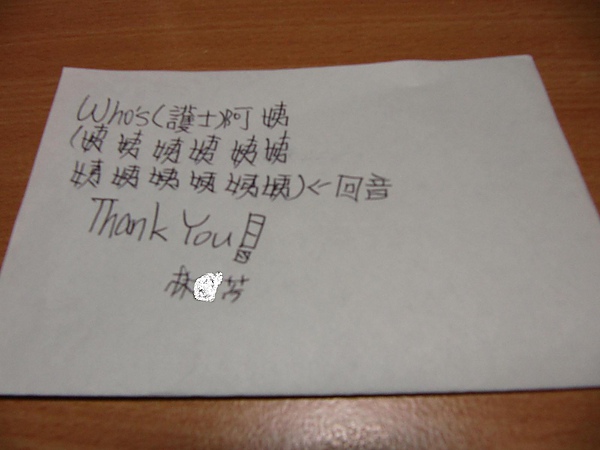 Who's(護士)阿姨
(姨姨姨姨姨姨
姨姨姨姨姨姨)←回音
Thank You!
林 芳